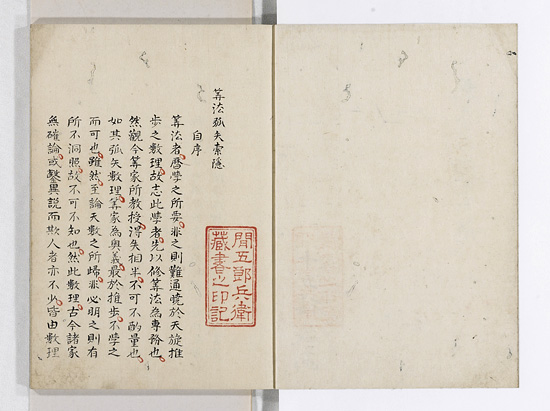 筭法弧矢索隱
自序
筭法者暦學之所要非之則難通曉於天旋推
歩之數理故志此學者先以修筭法為專務也
然觀今筭家所教授得失相半不可不酌量也
如其弧矢數理筭家為奥義最於推歩不學之
而可也雖然至論天數之所帰非必明之則有
所不洞照故不可不知也然此數理古今諸家
無確論或鑿異説而欺人者亦不少皆由數理
間五郎兵衛
藏書之印記